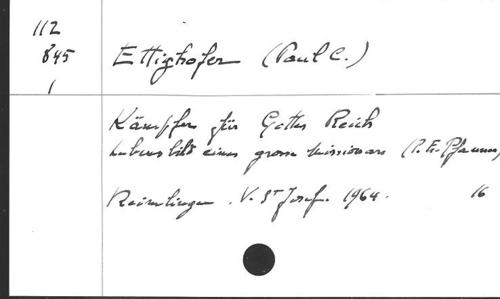 112
845
1
Ettighofer (Paul C.)
Kämpfer für Gottes Reich
Lebensbild eines grosse Missionars (P. Fr. Pfanner)
Reimlingen. V. St Josef. 1964. 16